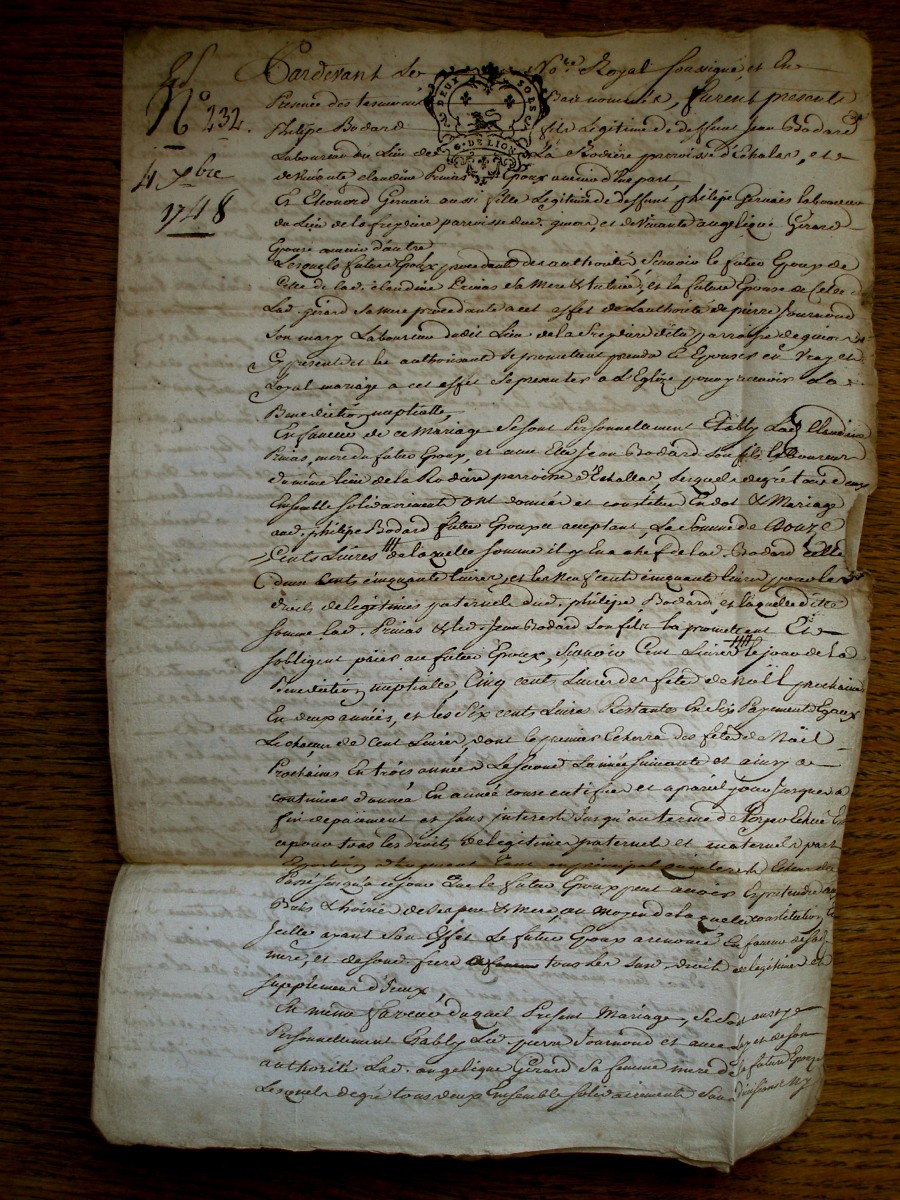 N° 232.
4 7bre
1748
DEUX SOLS
G. DE LION
Pardevant Le No.re Royal soussigné, et En
Presence des temoins Bas nommés, furent presents
Philipe Bodard fils Legitime de deffunt Jean Bodard
Laboureur du Lieu de La Rodiere parroisse d'Echalas, et
de vivante claudine Primas Epoux avenir d'une part
Et Eleonord Gervais aussi fille Legitime de deffunt philipe Gervais laboureur
du Lieu de la parroisse dud. et de vivante angelique Girard
Epouse avenir d'autre
Lesquels futurs Epoux procedants des authorités, Sçavoir le futur Epoux de
Celle de lad. claudine Primas Sa Mere et la future Epouse de Celle de
Lad. girard Sa mere procedante a cet effet de L'authorité de pierre Journoud
Son mary Laboureur dudit Lieu de la parroisse de
Cy present et la authorisant Se promettent prendre et Epouser en vray et
Loyal mariage a cet effet Se presenter a L'Eglise pour y recevoir La
Benediction nuptialle,
En faveur de ce Mariage Se sont Personnellement Etably Lad. Claudine
Primas, mere du futur Epoux, et avec Elle Jean Bodard Son fils Laboureur
du même Lieu de la Rodiere parroisse d'Echalas, Lesquels de gré tous deux
Ensemble Solidairement ont donnée et constitué En dot & Mariage
aud. philipe Bodard futur Epoux acceptant, La Somme de Douze
Cents Livres de laquelle Somme il y En a chef de lad. Bodard celle
deux Cents cinquante livres, et les Neuf cents cinquante livres pour les
droits de legitimes paternel dud. philipe Bodard, et laquelle ditte
Somme Lad. Primas & led. Jean Bodard Son fils la promettent Et
Sobligent païer au futur Epoux, Sçavoir Cent Livres le jour de La
Benediction nuptialle, Cinq cents Livres des fêtes de Noël prochaine
En deux années, et les Six cents Livres Restants En Six Payements Egaux
Le chacun de Cent Livres, dont le premier Echerra des fêtes de Noël
Prochaines En trois années Le Second L'année suivante et ainsy
continuer d'année En année consecutifve et a pareil jour Jusques a
fin de paiement et Sans interests Jusqu'au terme de Chaque Echue Et
ce pour tous les droits de legitime paternel et maternels part
tant en principal qu'interests Echus
Passé Jusqu'à ce jour que le futur Epoux peut avoir Et pretendre
Biens & hoirie de Ses pere & mere, au moyen de laquelle constitution
Icelle ayant Son Effet Le futur Epoux a renoncé En faveur de Sad.
mere, et de Sond. frere tous les Susd. droits de legitime et
Supplement d'iceux,
En même faveur duquel Present Mariage, Se Sont aussy
Personnellement Etably Led. pierre Journoud et avec Luy et de Son
authorité Lad. angelique Girard Sa femme mere de la future Epouse
Lesquels de gré tous deux Ensemble Solidairement Sans division Ny